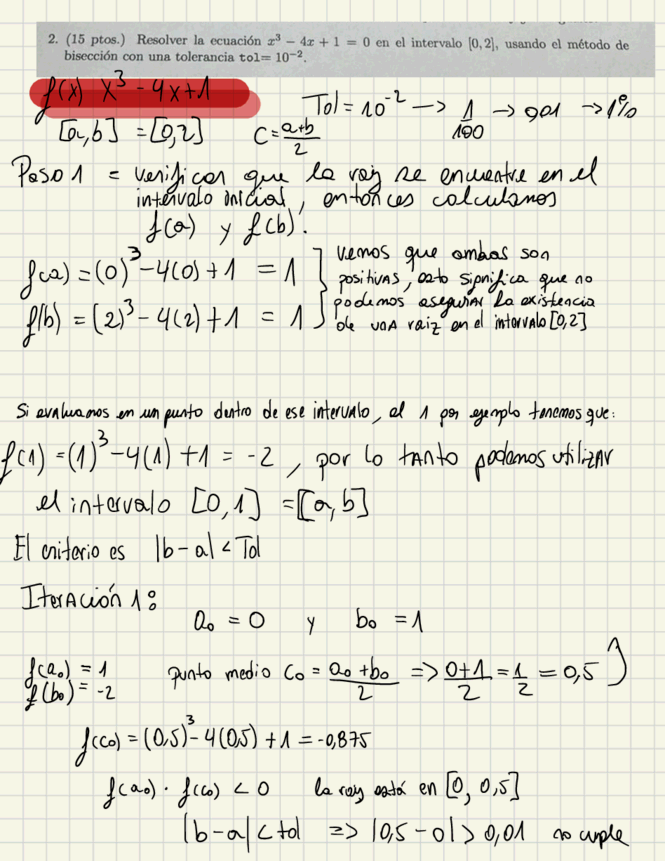 2. (15 ptos.) Resolver la ecuación x³ − 4x + 1 = 0 en el intervalo [0, 2], usando el método de
bisección con una tolerancia tol= 10⁻².
f(x) x³ - 4x+1
[a,b] = [0,2] C = a+b/2 Tol = 10⁻² → 1/100 → 0,01 → 1%
Paso 1 = verificar que la raiz se encuentre en el
intervalo inicial, entonces calculamos
f(a) y f(b).
f(a) = (0)³ - 4(0) + 1 = 1
f(b) = (2)³ - 4(2) + 1 = 1
vemos que ambas son
positivas, esto significa que no
podemos asegurar la existencia
de una raiz en el intervalo [0,2]
Si evaluamos en un punto dentro de ese intervalo, el 1 por ejemplo tenemos que:
f(1) = (1)³ - 4(1) + 1 = -2 , por lo tanto podemos utilizar
el intervalo [0,1] = [a,b]
El criterio es |b - a| < Tol
Iteración 1:
a₀ = 0 y b₀ = 1
f(a₀) = 1
f(b₀) = -2
punto medio C₀ = a₀ + b₀/2 => 0+1/2 = 1/2 = 0,5
f(c₀) = (0,5)³ - 4(0,5) + 1 = -0,875
f(a₀) · f(c₀) < 0 la raiz está en [0, 0,5]
|b - a| < tol => |0,5 - 0| > 0,01 no cumple